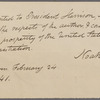 ted to President Harrison,
the respects of his author &
prosperity of the United States
stitution.
Noah
en February 24
41.